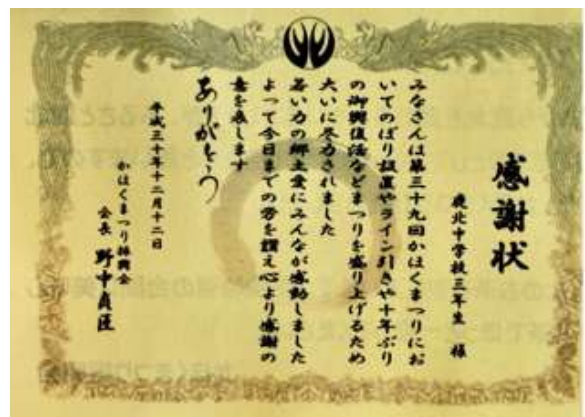 感謝状
鹿北中学校三年生 様
みなさんは第三十九回かほくまつりにお
いてのぼり設置やライン引きや十年ぶり
の御輿復活などまつりを盛り上げるため
大いに尽力されました
若い力の郷土愛にみんなが感動しました
よって今日までの労を讃え心より感謝の
意を表します
ありがとう
平成三十年十二月十二日
かほくまつり振興会
会長 野中貞匡